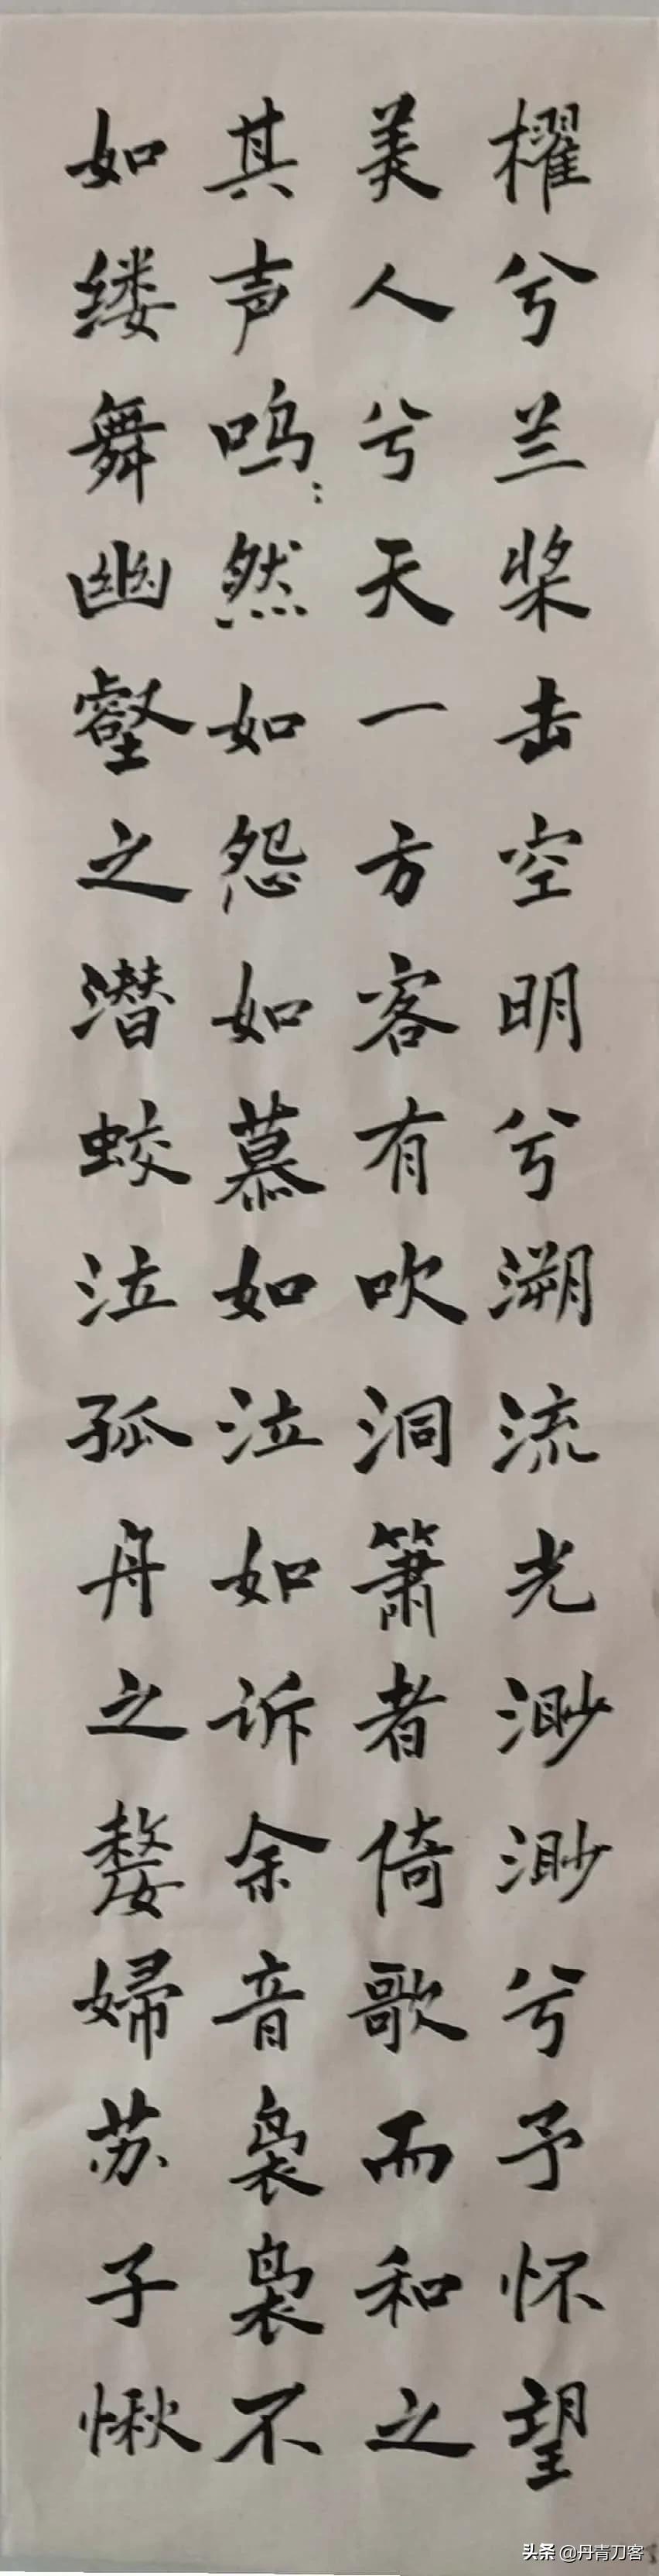 櫂兮兰桨击空明兮溯流光渺渺兮予怀望
美人兮天一方客有吹洞箫者倚歌而和之
其声呜:然如怨如慕如泣如诉余音袅袅不
如缕舞幽壑之潜蛟泣孤舟之嫠婦苏子愀
头条 @丹青刀客